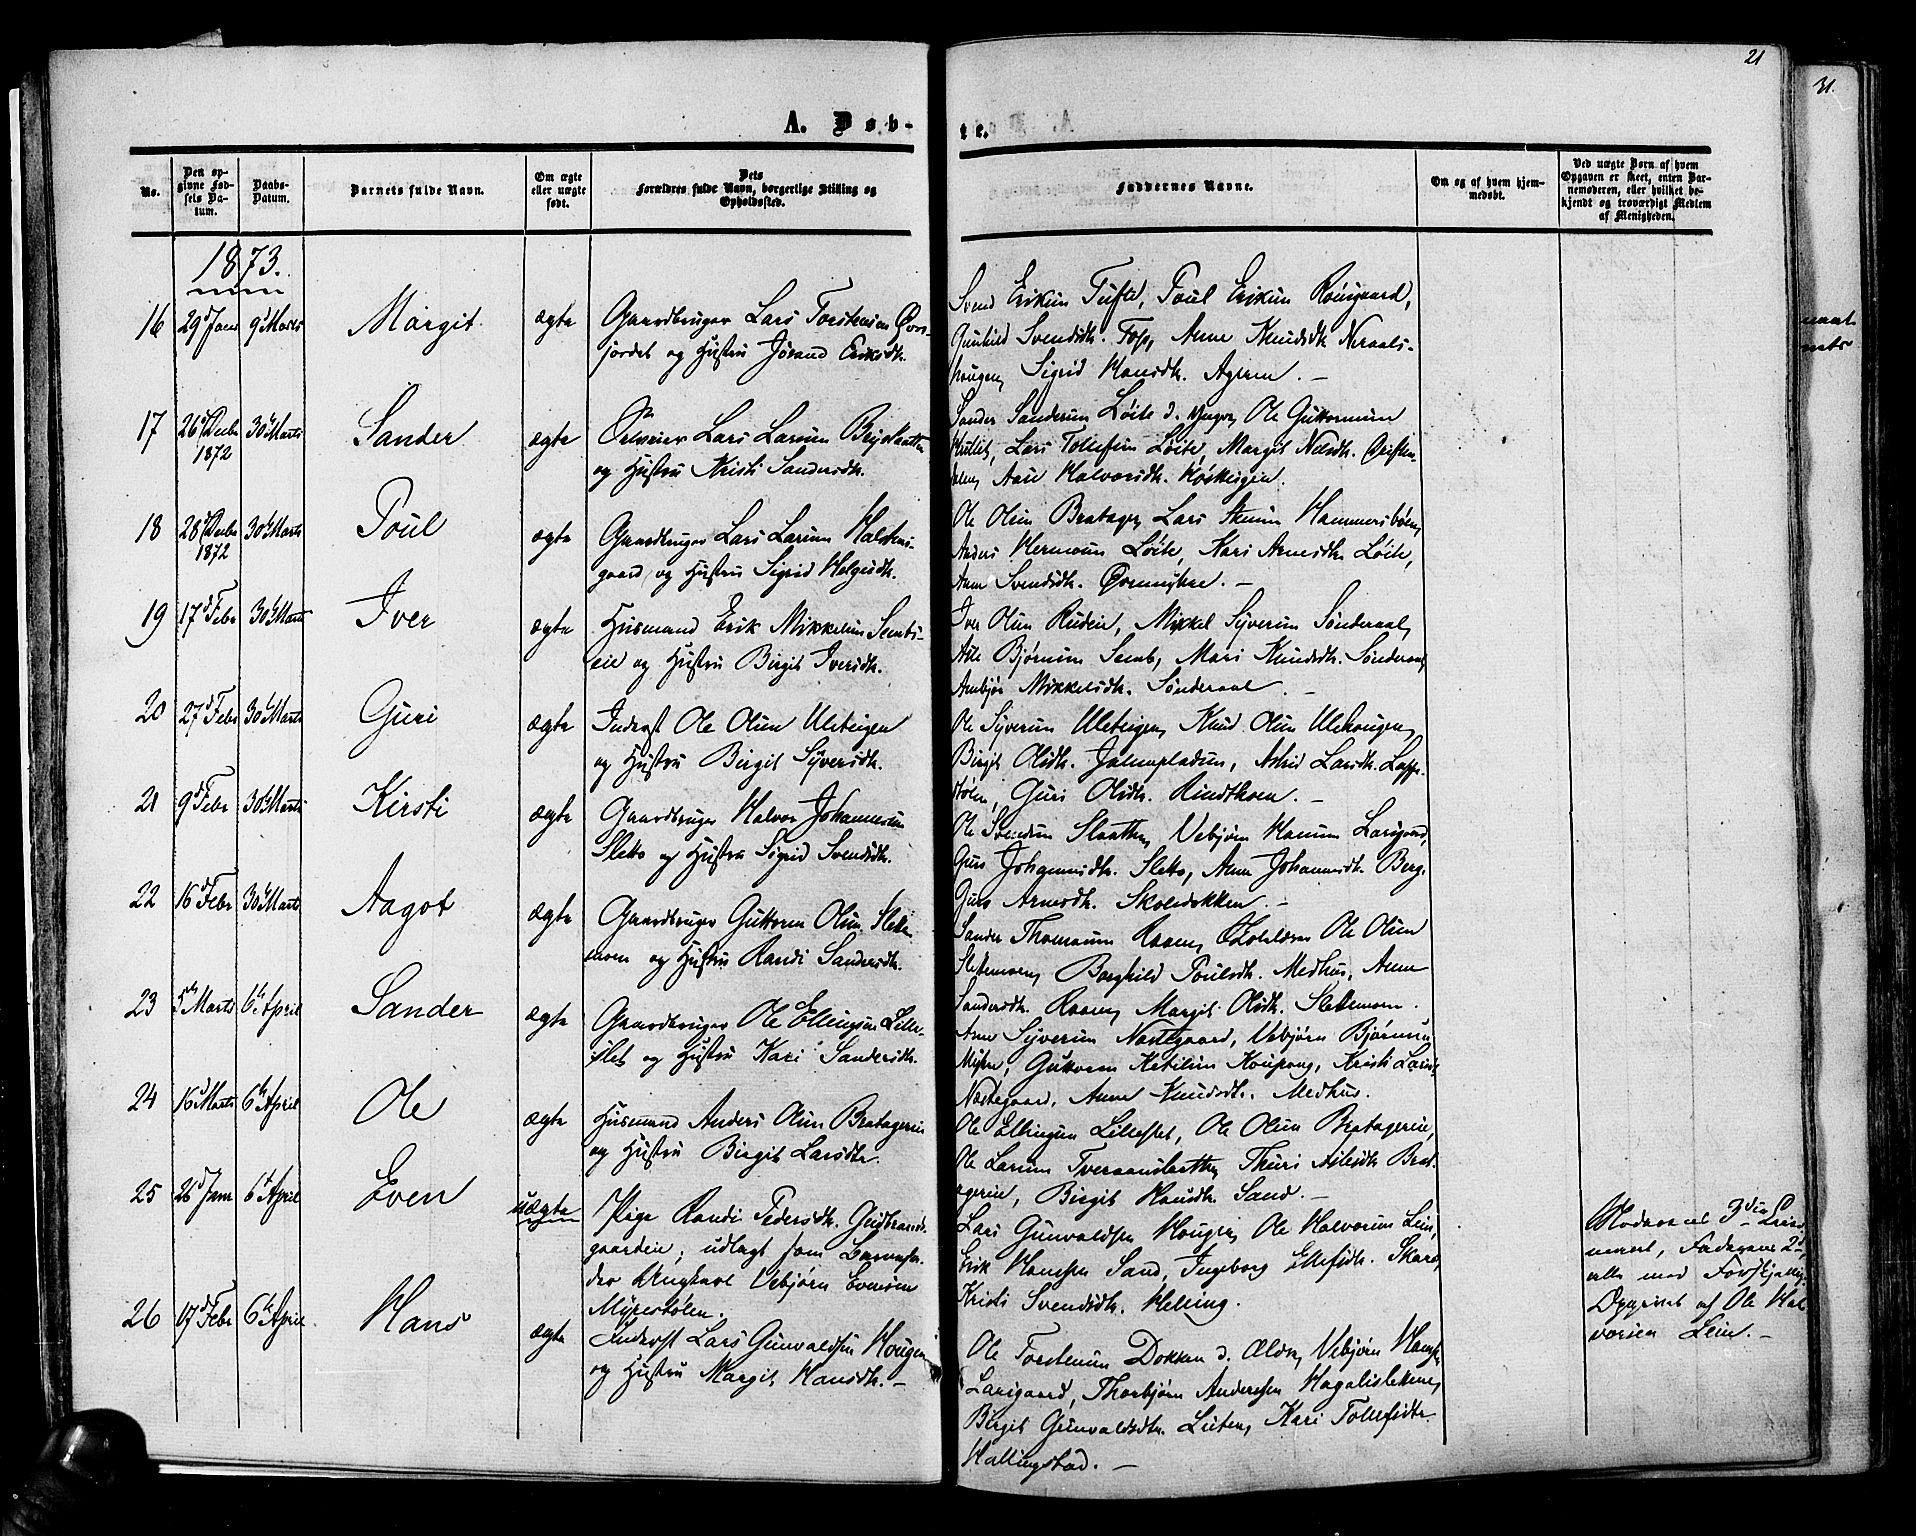 21
31.
A. Døb-
te.
No.
Den op-
givne Fød-
sels Da-
tum.
Daabs-
Datum.
Barnets fulde Navn.
Om ægte
eller uægte
født.
Dets
Forældres fulde Navn, borgerlige Stilling og
Opholdssted.
Faddernes Navne.
Om og af hvem hjem-
medøbt.
Ved uægte Børn af hvem
Opgaven er skeet, enten Bar-
nemoderen, eller hvilket be-
kjendt og troværdigt Medlem
af Menigheden.
1873.
16 29d Janr 9d Marts Margit ægte Gaardbruger Lars Torstensen Øvre-
jordet og Hustru Jørand Eriksdtr.
Svend Eriksen Tufte, Poul Eriksen Rønsgaard,
Gunhild Svendsdtr. Foss, Anne Knudsdtr
haugen, Sigrid Hansdtr. Ageren. -
17 26d Decbr 1872 30te Marts Sander ægte Lars Larsen
og Hustru Kristi Sandersdtr.
Sander Sandersen Løite d. yngre, Ole Guttormsen
Lars Tollefsen Løite, Margit Nilsdtr.
Halvorsdtr.
18 28d Decbr 1872 30te Marts Poul ægte Gaardbruger Lars Larsen Halstens-
gaard, og Hustru Sigrid Helgesdtr.
Ole Olsen Bratager, Lars Hammersbøen,
Anders Hermansen Løite, Kari Arnesdtr. Løite,
Anne Svendsdtr. -
19 17d Febr 30te Marts Iver ægte Husmand Erik Mikkelsen Sembs-
eie og Hustru Birgit Iversdtr.
Iver Olsen Rudeie, Mikkel Syversen Sønderaal,
Asle Bjørnsen Semb, Mari Knudsdtr. Sønderaal,
Ambjør Mikkelsdtr. Sønderaal. -
20 27d Febr 30te Marts Guri ægte Inderst Ole Olsen Uleteigen
og Hustru Birgit Syversdtr.
Ole Syversen Uleteigen, Knud Olsen Ulehougen,
Birgit Olsdtr. Astrid Larsdtr.
Guri Olsdtr. -
21 9d Febr 30te Marts Kirsti ægte Gaardbruger Halvor Johannessen
Sletto og Hustru Sigrid Svendsdtr.
Ole Svendsen Slaatten, Vebjørn Hansen Larsgaard,
Guri Johannesdtr. Sletto, Anne Johannesdtr. Berg,
Guri Arnesdtr. Skoledokken. -
22 16d Febr 30te Marts Aagot ægte Gaardbruger Guttorm Olsen Slette-
moen og Hustru Randi Sandersdtr.
Sander Thomassen Ole Olsen
Slettemoen, Borghild Poulsdtr. Medhus, Anne
Sandersdtr. Margit Olsdtr. Slettemoen.
23 5te Marts 6te April Sander ægte Gaardbruger Ole Ellingsen Lille-
slet og Hustru Kari Sandersdtr.
Arne Syversen Næstegaard, Vebjørn Bjørnsen
Myhre, Guttorm Ketilsen Kristi Larsdtr.
Næstegaard, Anne Knudsdtr. Medhus.
24 16d Marts 6te April Ole ægte Husmand Anders Olsen Bratagereie
og Hustru Birgit Larsdtr.
Ole Ellingsen Lilleslet, Ole Olsen Bratagereie,
Ole Larsen Tveraanslaatten, Thuri Aslesdtr. Brat-
agereie, Birgit Hansdtr. Sand. -
25 26d Janr 6te April Even uægte Pige Randi Pedersdtr. Gudbrands-
gaardeie, udlagt som Barnefa-
der Ungkarl Vebjørn Evensen
Myrestølen.
Lars Gunvaldsen Hougen, Ole Halvorsen Lein,
Erik Hansen Sand, Ingeborg Ellefsdtr. Skaro,
Kristi Svendsdtr. Helling.
Moderens 3die Leier-
maal, Faderens 2d,
alle med Forskjellige.
Opgivet af Ole Hal-
vorsen Lein. -
26 17d Febr 6te April Hans ægte Inderst Lars Gunvaldsen Hougen
og Hustru Margit Hansdtr. -
Ole Torstensen Dokken d. Ældre, Vebjørn Hansen
Larsgaard, Thorbjørn Andersen
Birgit Gunvaldsdtr. Kari Tollefsdtr.
Hallingstad. -